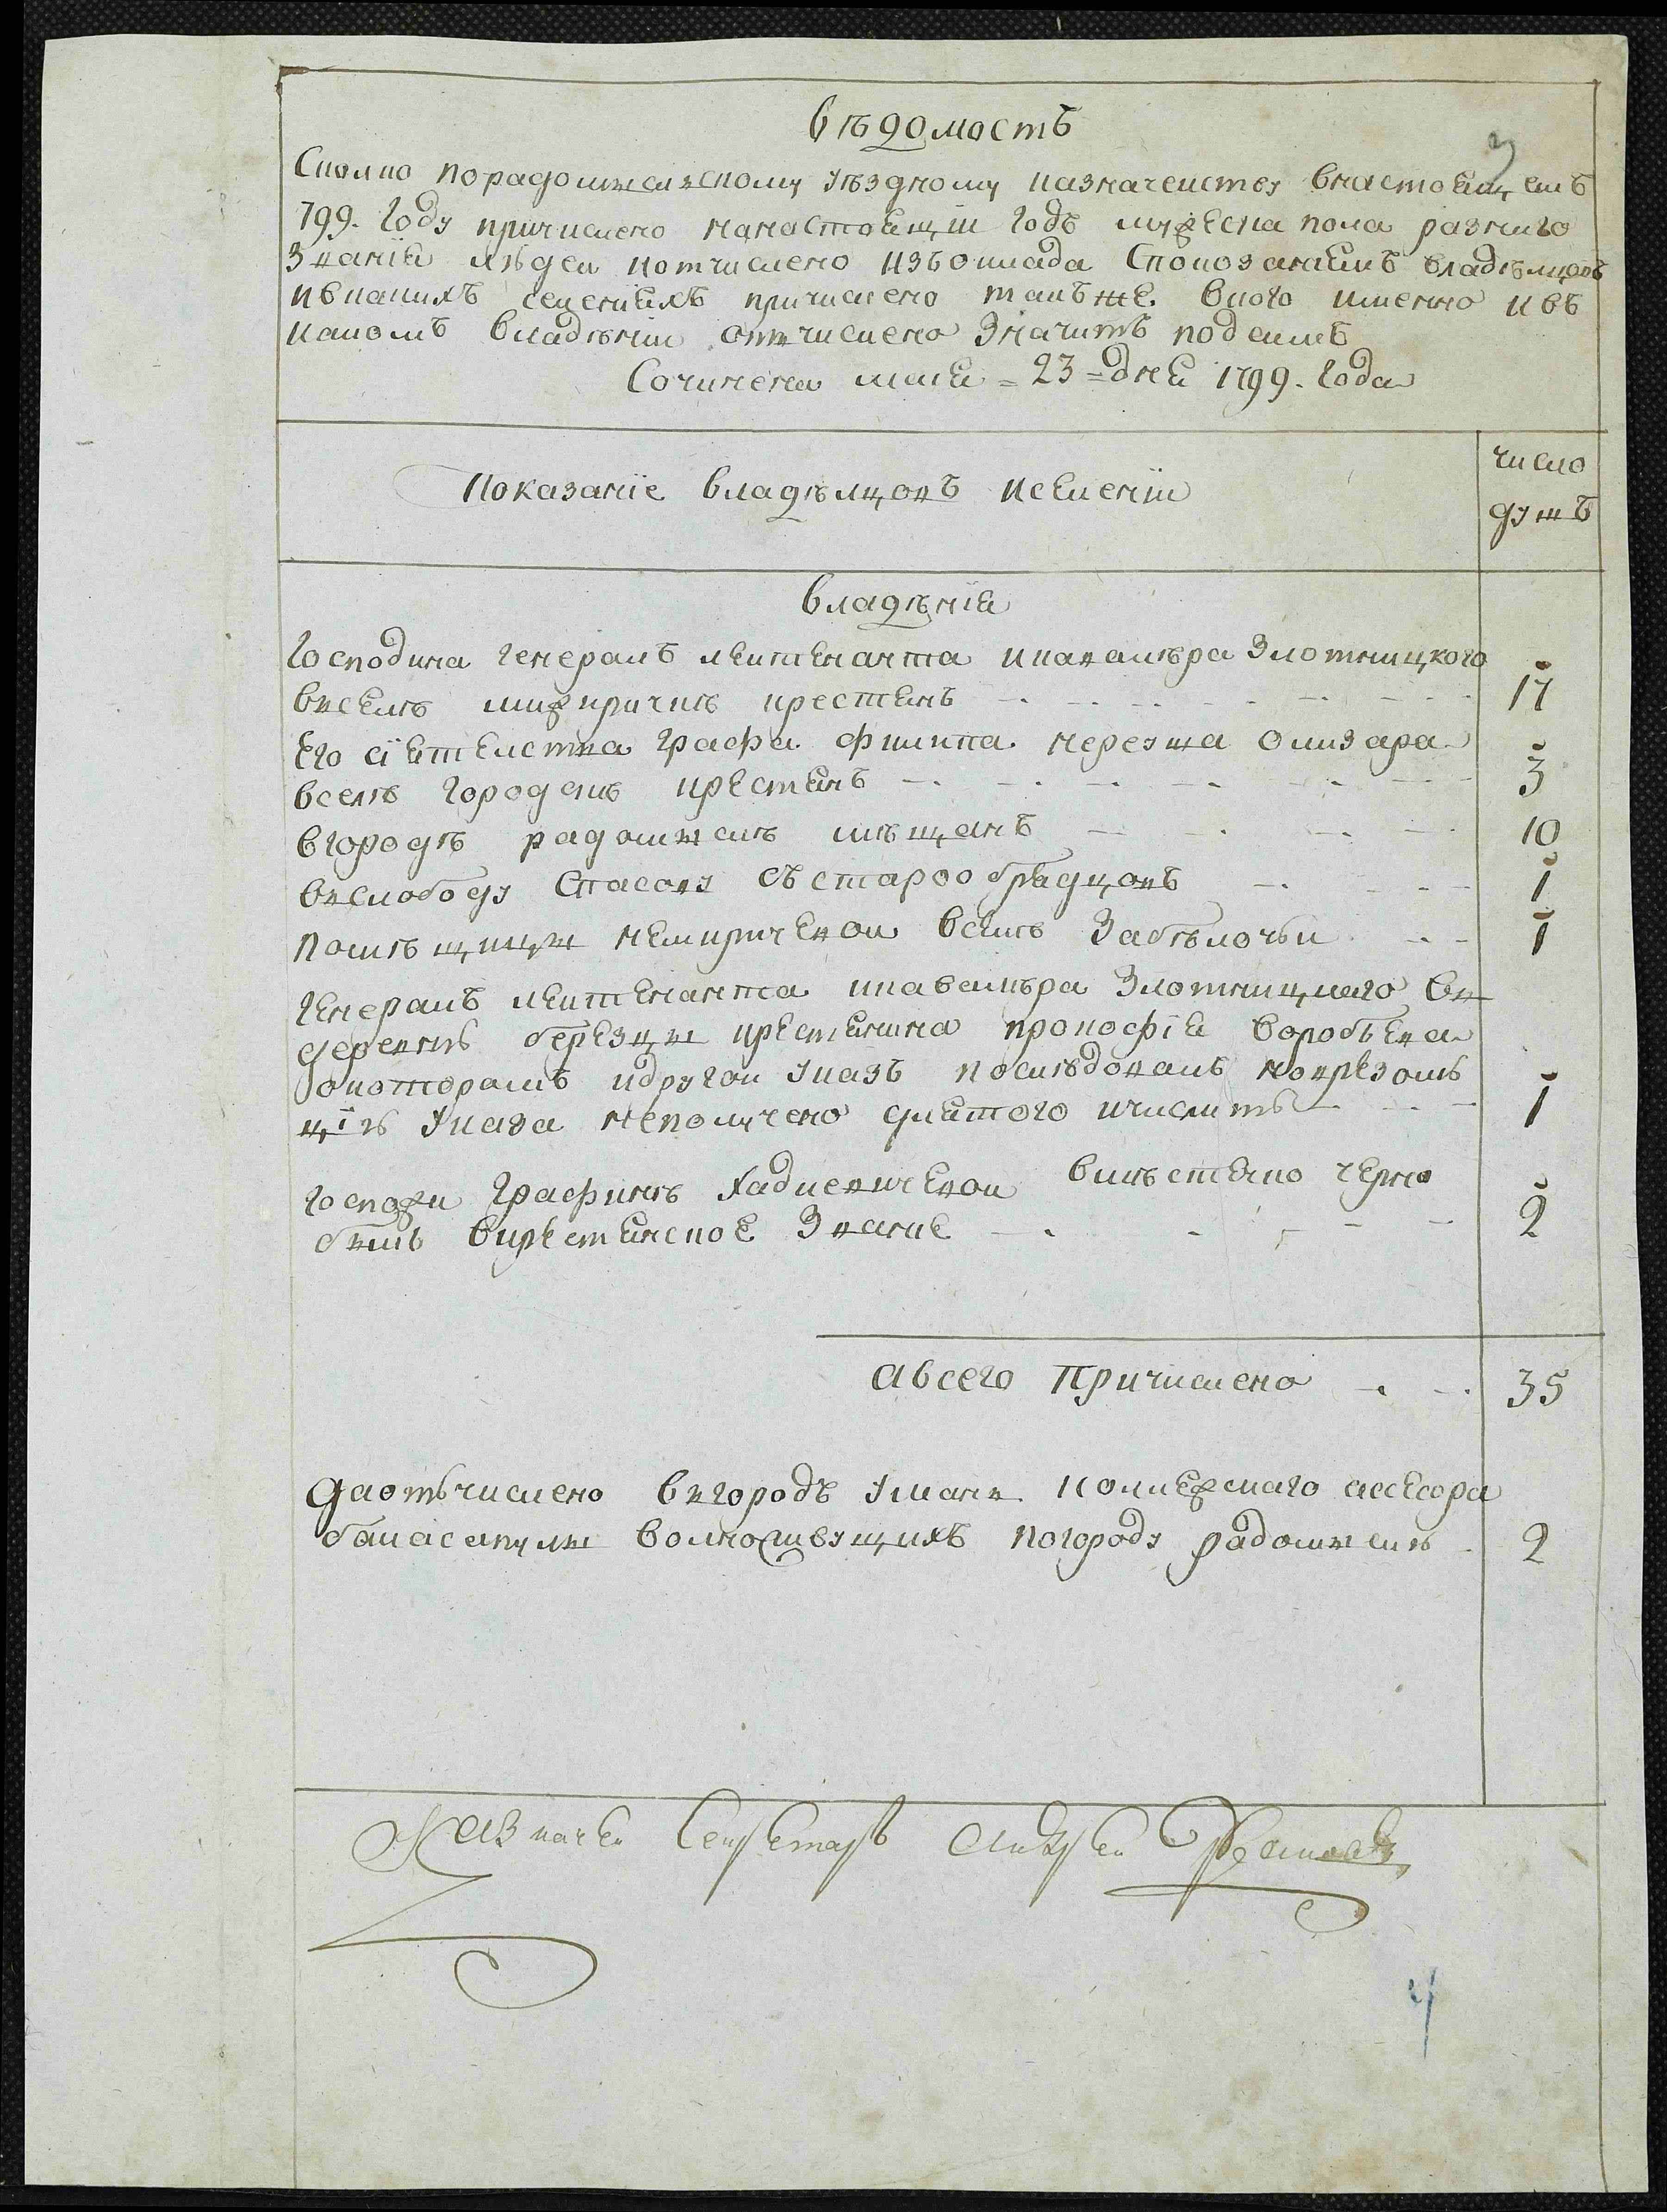 вѣдомость
Сколко порадомыслскому уѣздному казначеиству внастоящемъ
799. Году причислено нанастоящiи годъ мужеска пола разнаго
званiя людеи иотчислено изъоклада Спокозанiемъ владѣлцовъ
ивкакихъ селенiяхъ причислено такъже. вкого именно ивъ
какомъ владѣнiи отчислено Значитъ подсимъ
Сочинена маия = 23 = дня 1799. Года
Показанiе владѣлцовъ иселенiи
число
душъ
владѣнiя
Господина генералъ леитенанта икавалѣра Злотницкого
вселѣ межиричкѣ крестянъ 17
Его сiятелства графа филипа нерезша Олизара
вселѣ городскѣ крестянъ 3
вгородѣ радомыслѣ мѣщанъ 10
вслободу Спасову Състарообрядцовъ 1
помѣщицы немиричевои вселѣ Забѣлочьи 1
генералъ леитенанта икавалѣра Злотницкаго въ
деревнѣ березцы крестянина прокофiя воробьева
окоторомъ идругои указъ послѣдовалъ норезолю
цiѣ указа неполучено длятого ичислитъ 1
госпожи графинѣ Хадкевичевои вмѣстечко черно
былѣ вкрестянское Званiе 2
авсего Причислено 35
даотъчислено вгородъ умань колежскаго асесора
волноживущихъ погороду радомыслѣ 2
Казначеи Секретарь Андреи
4